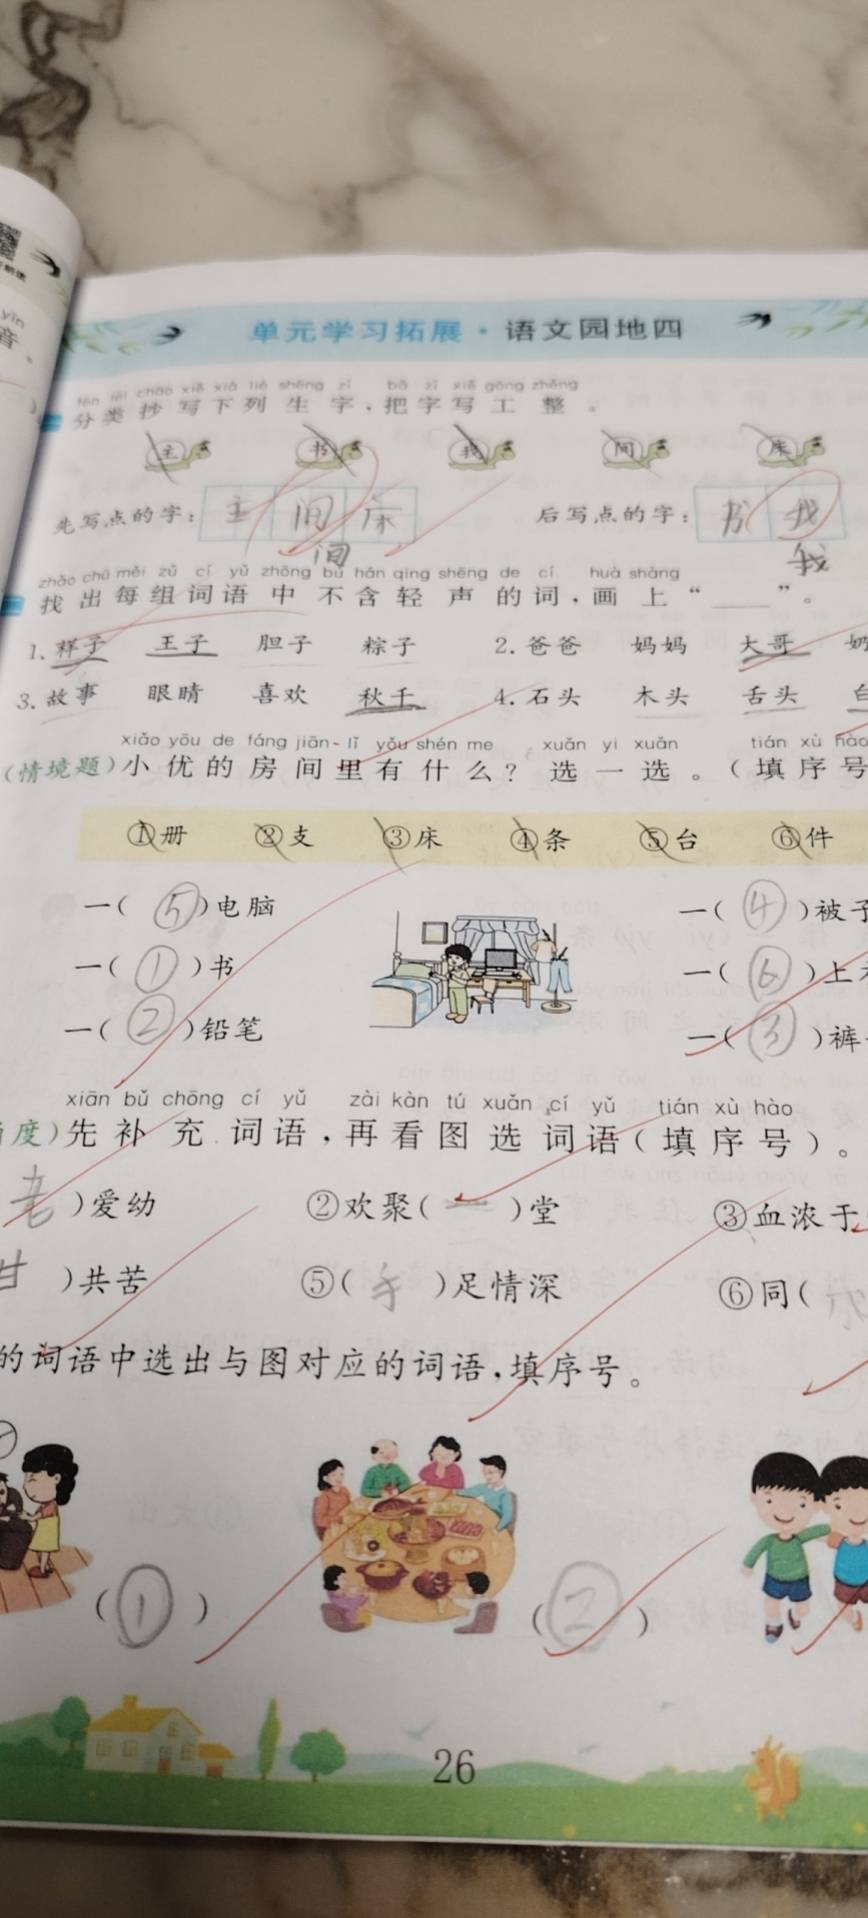 yīn
音。
单元学习拓展·语文园地四
fēn lèi chāo xiě xià liè shēng zì bǎ zì xiě gōng zhěng
分类抄写下列生字，把字写工整。
主 书 我 间 床
先写点的字： 主 间 床 后写点的字： 书 我
间 我
zhǎo chū měi zǔ cí yǔ zhōng bù hán qīng shēng de cí huà shàng
找出每组词语中不含轻声的词，画上“____”。
1. 样子 王子 胆子 粽子 2. 爸爸 妈妈 大哥 奶
3. 故事 眼睛 喜欢 秋千 4. 石头 木头 舌头
xiǎo yōu de fáng jiān lǐ yǒu shén me xuǎn yi xuǎn tián xù hào
（情境题）小优的房间里有什么？选一选。（填序号
①册 ②支 ③床 ④条 ⑤台 ⑥件
一（⑤）电脑 一（④）被子
一（①）书 一（⑥）上
一（②）铅笔 一（③）裤
xiān bǔ chōng cí yǔ zài kàn tú xuǎn cí yǔ tián xù hào
度）先补充词语，再看图选词语（填序号）。
老）爱幼 ②欢聚（一）堂 ③血浓于
甘）共苦 ⑤（手）足情深 ⑥同（
的词语中选出与图对应的词语，填序号。
（①） （②）
26